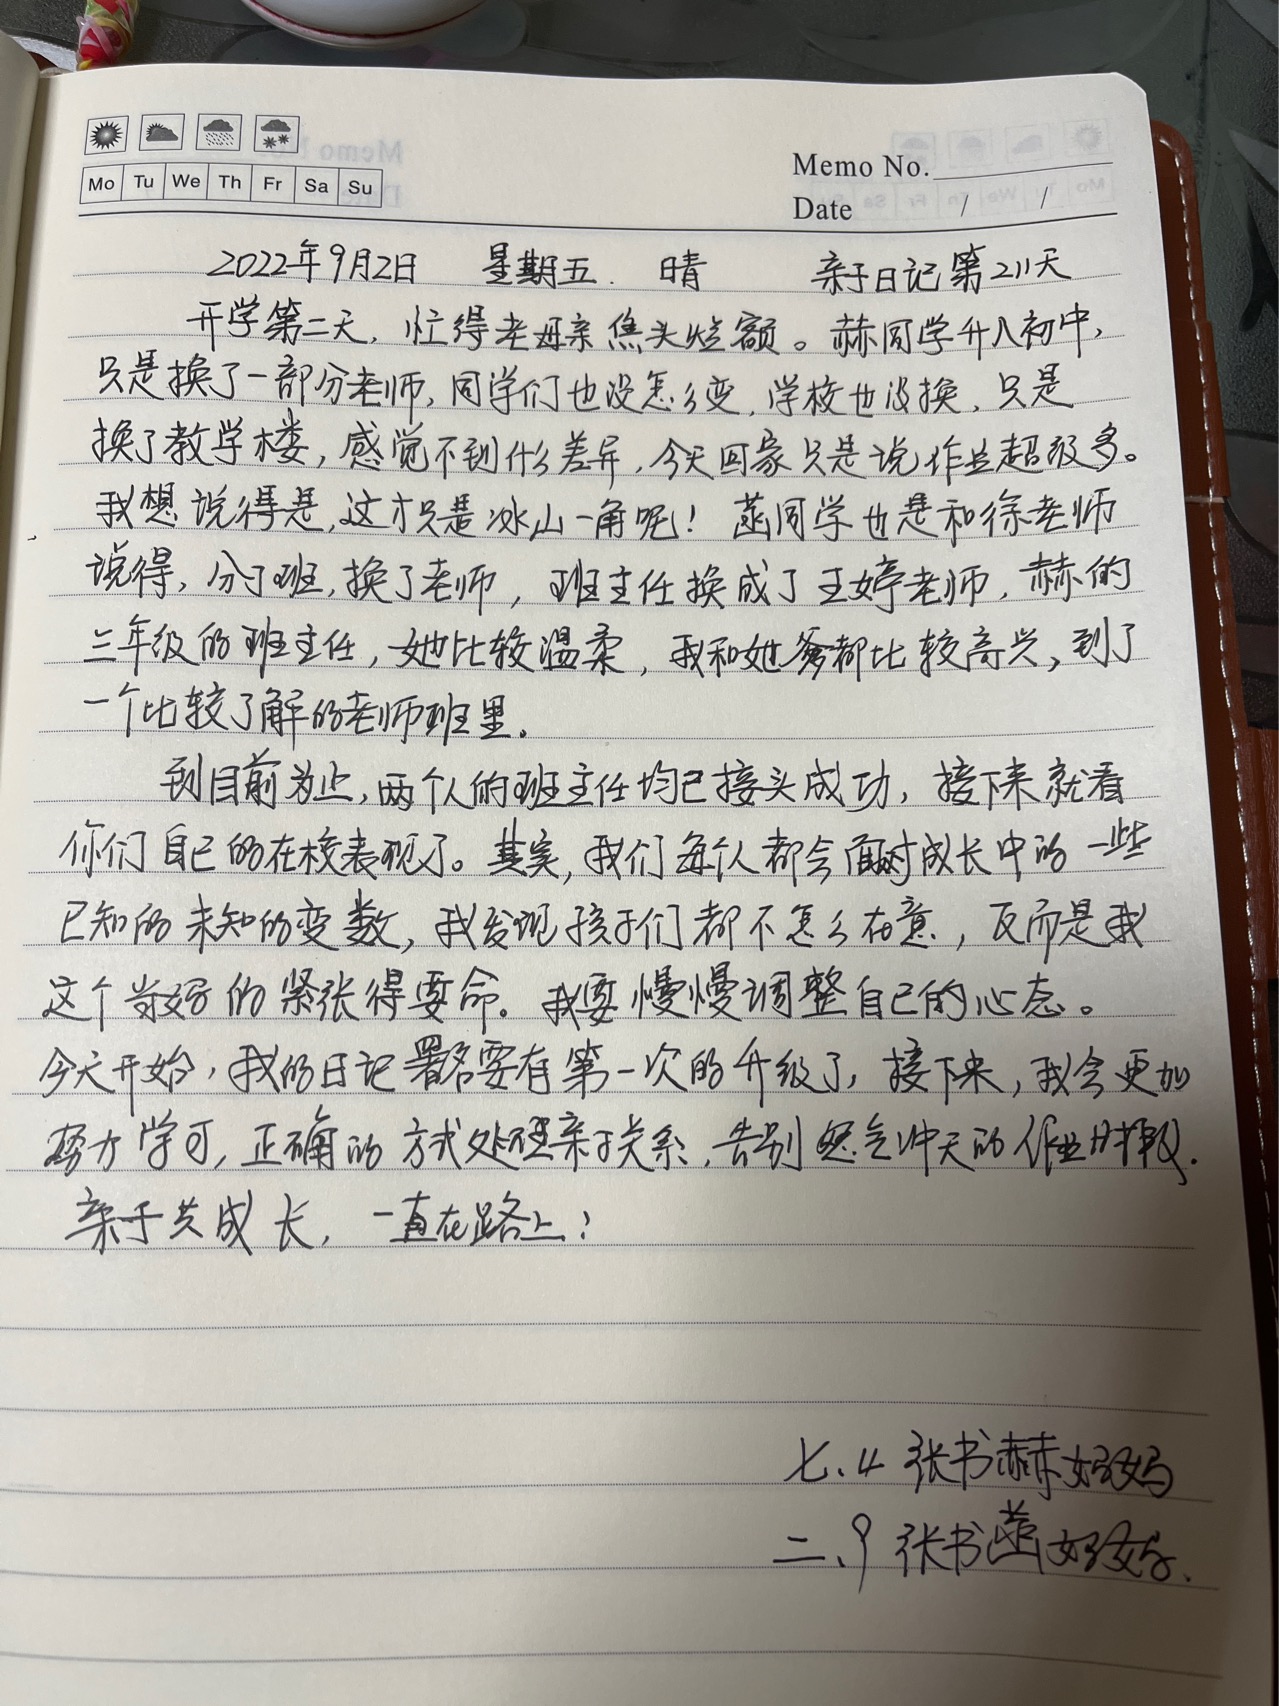 Mo Tu We Th Fr Sa Su
Memo No.
Date / /
2022年9月2日 星期五. 晴 亲子日记第211天
开学第二天，忙得老母亲焦头烂额。赫同学升入初中，
只是换了一部分老师，同学们也没怎么变，学校也没换，只是
换了教学楼，感觉不到什么差异，今天回家只是说作业超级多。
我想说得是，这才只是冰山一角呢！菡同学也是和徐老师
说得，分了班，换了老师，班主任换成了王婷老师，赫的
三年级的班主任，她比较温柔，我和她爹都比较高兴，到了
一个比较了解的老师班里。
到目前为止，两个人的班主任均已接头成功，接下来就看
你们自己的在校表现了。其实，我们每个人都会面对成长中的一些
已知的未知的变数，我发现孩子们都不怎么在意，反而是我
这个当妈的紧张得要命。我要慢慢调整自己的心态。
今天开始，我的日记署名要有第一次的升级了，接下来，我会更加
努力学习，正确的方式处理亲子关系，告别怨气冲天的作业时段.
亲子共成长，一直在路上！
七.4 张书赫妈妈
二.9 张书菡妈妈.